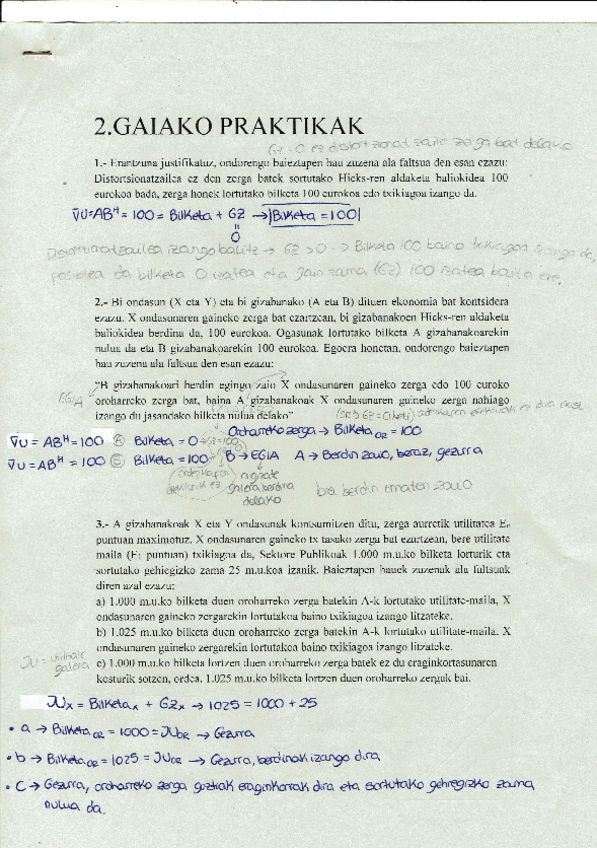 2.GAIAKO PRAKTIKAK
GZ=0 ez distortzionatzaile zerga bat delako
1.- Erantzuna justifikatuz, ondorengo baieztapen hau zuzena ala faltsua den esan ezazu:
Distortsionatzailea ez den zerga batek sortutako Hicks-ren aldaketa baliokidea 100
eurokoa bada, zerga honek lortutako bilketa 100 eurokoa edo txikiagoa izango da.
∇U=AB^H = 100 = Bilketa + GZ → |Bilketa = 100|
=
0
Distortsionatzailea izango balitz → GZ > 0 → Bilketa 100 baino txikiagoa izango da,
posiblea da bilketa 0 izatea eta gain zama (GZ) 100 izatea baita ere.
2.- Bi ondasun (X eta Y) eta bi gizabanako (A eta B) dituen ekonomia bat kontsidera
ezazu. X ondasunaren gaineko zerga bat ezartzean, bi gizabanakoen Hicks-ren aldaketa
baliokidea berdina da, 100 eurokoa. Ogasunak lortutako bilketa A gizabanakoarekin
nulua da eta B gizabanakoarekin 100 eurokoa. Egoera honetan, ondorengo baieztapen
hau zuzena ala faltsua den esan ezazu:
EGIA
"B gizabanakoari berdin egingo zaio X ondasunaren gaineko zerga edo 100 euroko
oroharreko zerga bat, baina A gizabanakoak X ondasunaren gaineko zerga nahiago
izango du jasandako bilketa nulua delako"
Orokarreko zerga → Bilketa OR = 100
∇U = AB^H = 100 (A) Bilketa = 0 → GZ=100
∇U = AB^H = 100 (B) Bilketa = 100 → B → EGIA A → Berdin zaio, beraz, gezurra
ordezkapen
efekturik ez
ongizate
galera berdina
delako
bia berdin ematen zaio
3.- A gizabanakoak X eta Y ondasunak kontsumitzen ditu, zerga aurretik utilitatea E₀
puntuan maximotuz. X ondasunaren gaineko tx tasako zerga bat ezartzean, bere utilitate
maila (E₁ puntuan) txikiagoa da, Sektore Publikoak 1.000 m.u.ko bilketa lorturik eta
sortutako gehiegizko zama 25 m.u.koa izanik. Baieztapen hauek zuzenak ala faltsuak
diren azal ezazu:
a) 1.000 m.u.ko bilketa duen oroharreko zerga batekin A-k lortutako utilitate-maila, X
ondasunaren gaineko zergarekin lortutakoa baino txikiagoa izango litzateke.
b) 1.025 m.u.ko bilketa duen oroharreko zerga batekin A-k lortutako utilitate-maila, X
ondasunaren gaineko zergarekin lortutakoa baino txikiagoa izango litzateke.
c) 1.000 m.u.ko bilketa lortzen duen oroharreko zerga batek ez du eraginkortasunaren
kosturik sortzen, ordea, 1.025 m.u.ko bilketa lortzen duen oroharreko zergak bai.
galera
∇Ux = Bilketax + GZx → 1025 = 1000 + 25
• a → Bilketa OR = 1000 = ∇U OR → Gezurra
• b → Bilketa OR = 1025 = ∇U OR → Gezurra, berdinak izango dira
• C → Gezurra, oroharreko zerga guztiak eraginkorrak dira eta sortutako gehiegizko zama
nulua da.